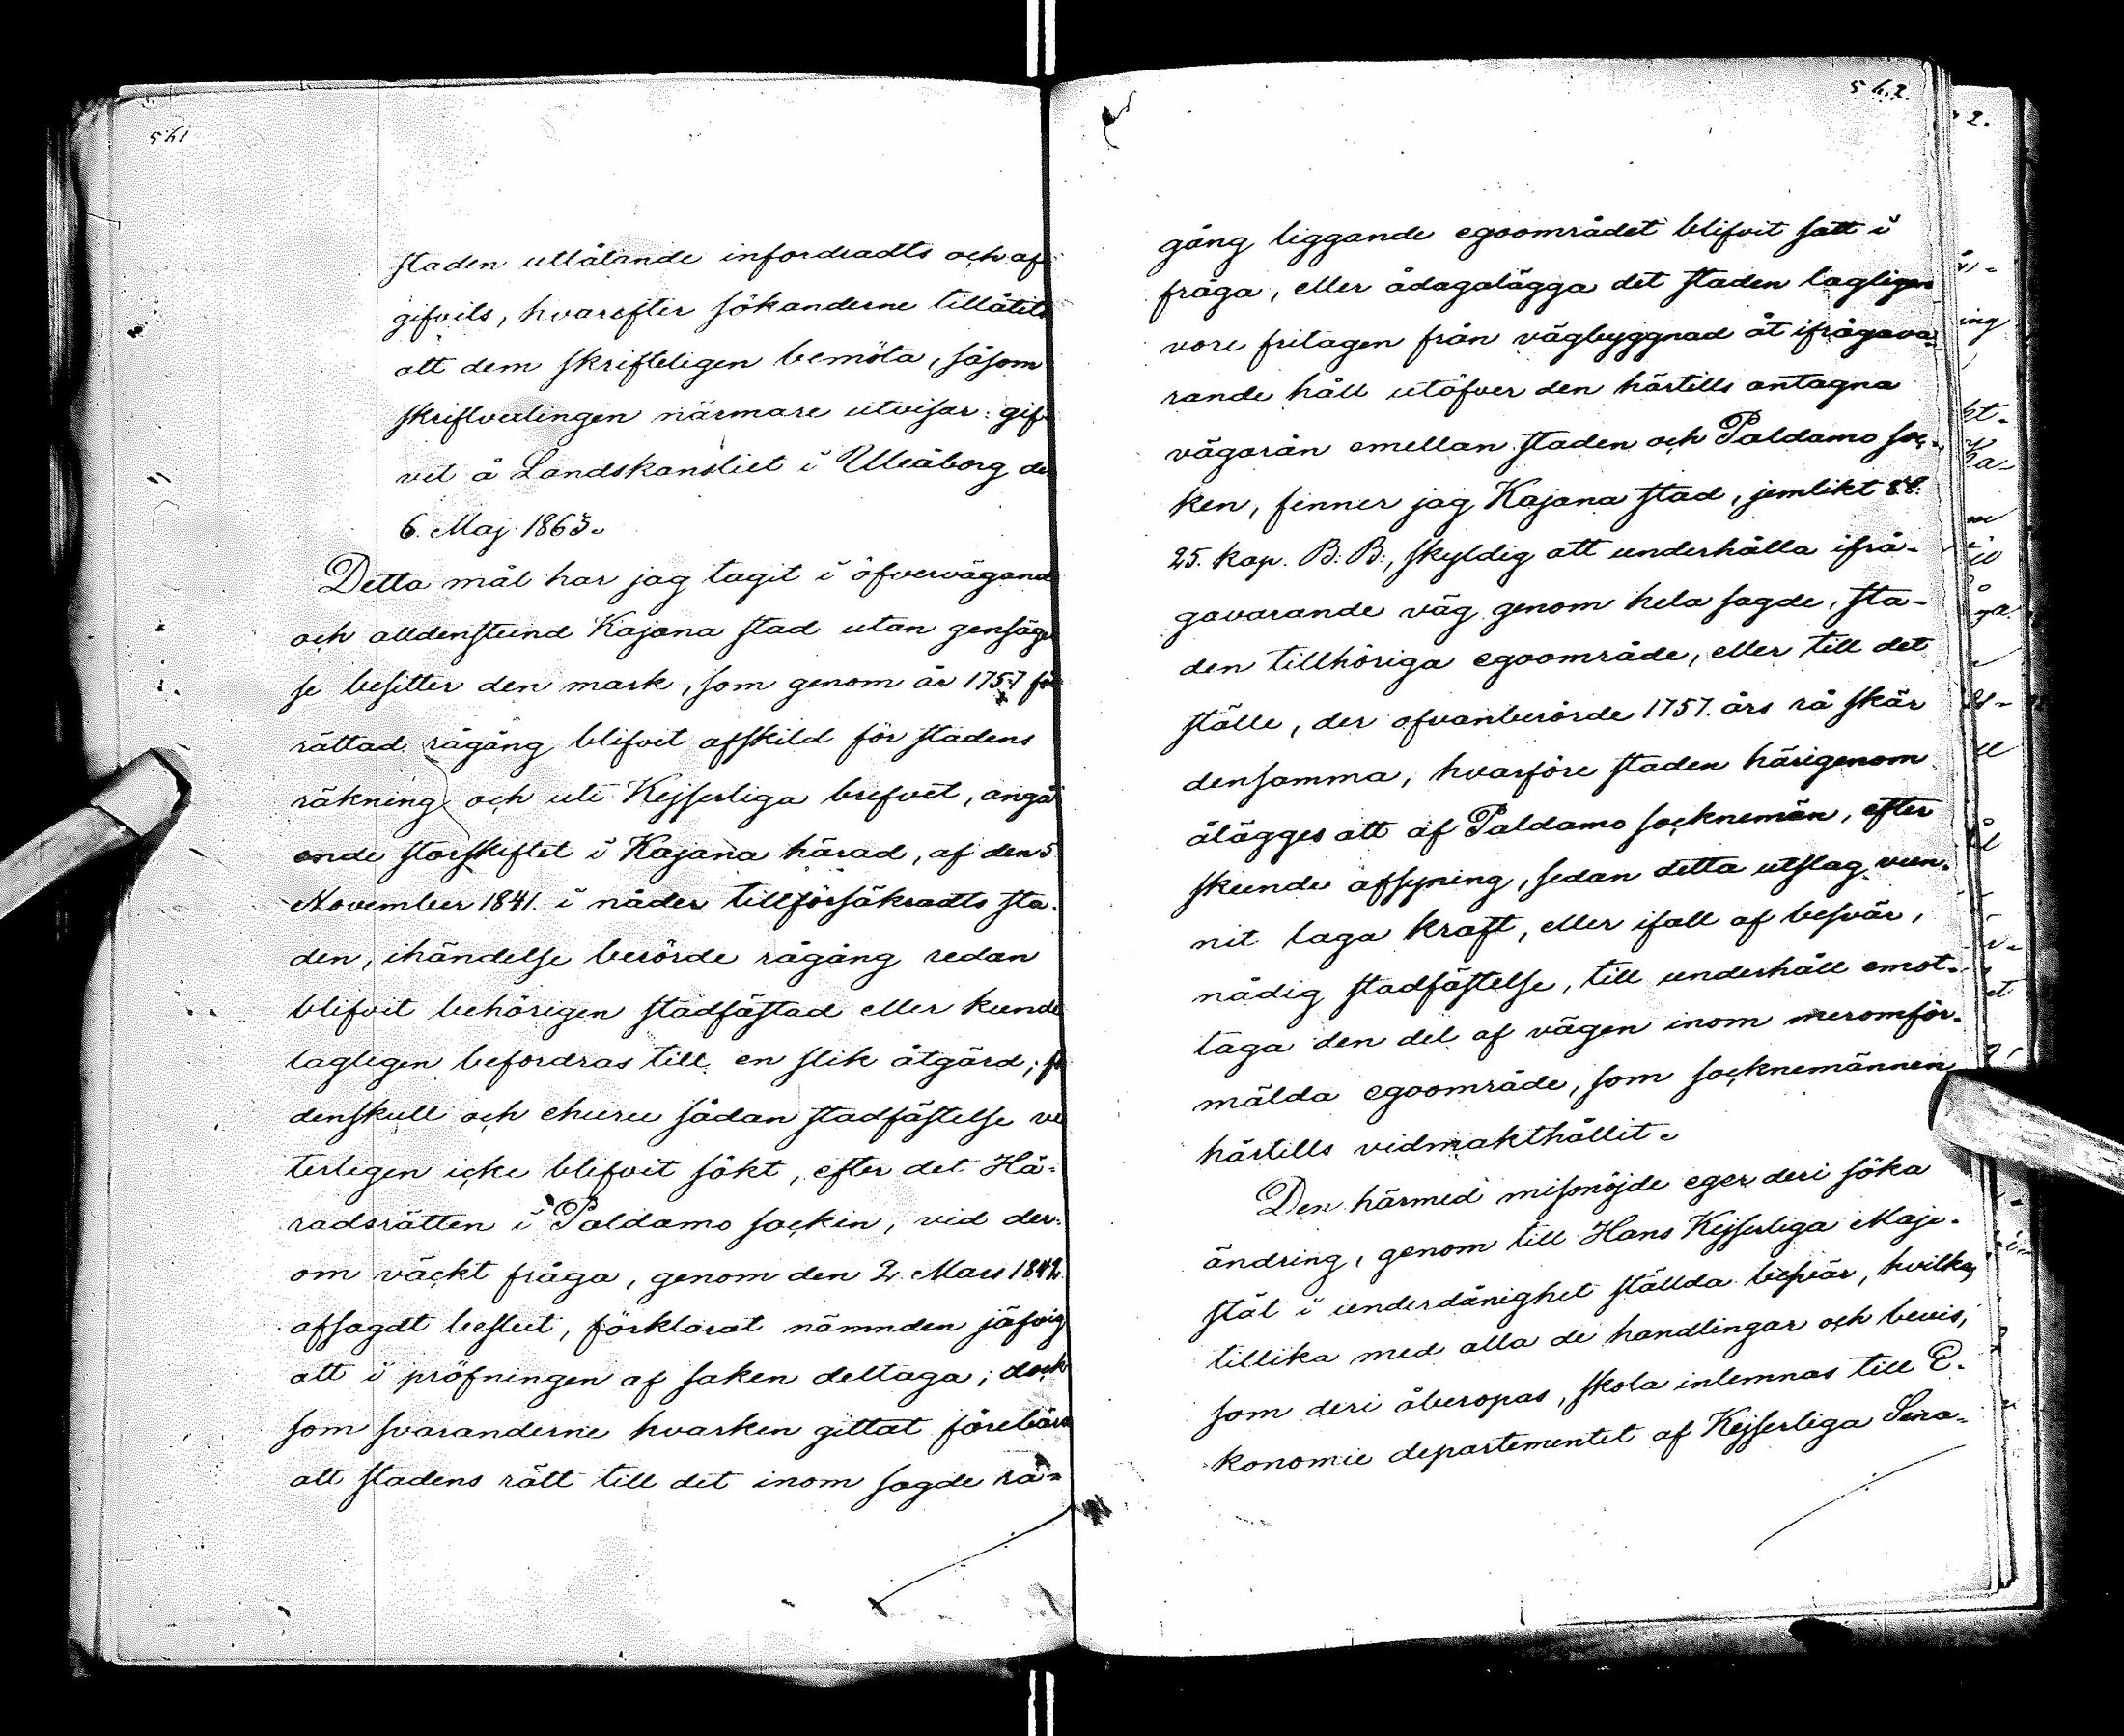 561
staden utlåtande infordradts och af-
gifvits, hvarefter sökanderne tillåtits
att dem skrifteligen bemöta, såsom
skriftvexlingen närmare utvisar: gif-
vet å Landskansliet i Uleåborg den
6. Maj 1863.
Detta mål har jag tagit i öfvervägande
och alldenstund Kajana stad utan gensägel
se besitter den mark, som genom år 1757 för
rättad rågång blifvit afskild för stadens
räkning och uti Kejserliga brefvet, angå
ende storskiftet i Kajana härad, af den 5
November 1841. i nåder tillförsäkradts sta-
den, ihändelse berörde rågång redan
blifvit behörigen stadfästad eller kunde
lagligen befordras till en slik åtgärd; fö
denskull och ehuru sådan stadfästelse ve
terligen icke blifvit sökt, efter det Hä-
radsrätten i Paldamo socken, vid der-
om väckt fråga, genom den 2. Mars 1842.
afsagdt beslut, förklarat nämnden jäfvig
att i pröfningen af saken deltaga; dock
som svaranderne hvarken gittat förebära
att stadens rätt till det inom sagde rå-
562.
gång liggande egoområdet blifvit satt i
fråga, eller ådagalägga det staden lagligen
vore fritagen från vägbyggnad åt ifrågava-
rande håll utöfver den härtills antagna
vägarån emellan staden och Paldamo soc-
ken, finner jag Kajana stad, jemlikt §§.
25. kap. B. B., skyldig att underhålla ifrå-
gavarande väg genom hela sagde, sta-
den tillhöriga egoområde, eller till det
ställe, der ofvanberörde 1757. års rå skär
densamma, hvarföre staden härigenom
ålägges att af Paldamo socknemän, efter
skeende afsyning, sedan detta utslag vun-
nit laga kraft, eller ifall af besvär,
nådig stadfästelse, till underhåll emot-
taga den del af vägen inom meromför-
mälda egoområde, som socknemännen
härtills vidmakthållit.
Den härmed missnöjde eger deri söka
ändring, genom till Hans Kejserliga Maje-
stät i underdånighet ställda besvär, hvilka,
tillika med alla de handlingar och bevis,
som deri åberopas, skola inlemnas till E-
konomie departementet af Kejserliga Sena-